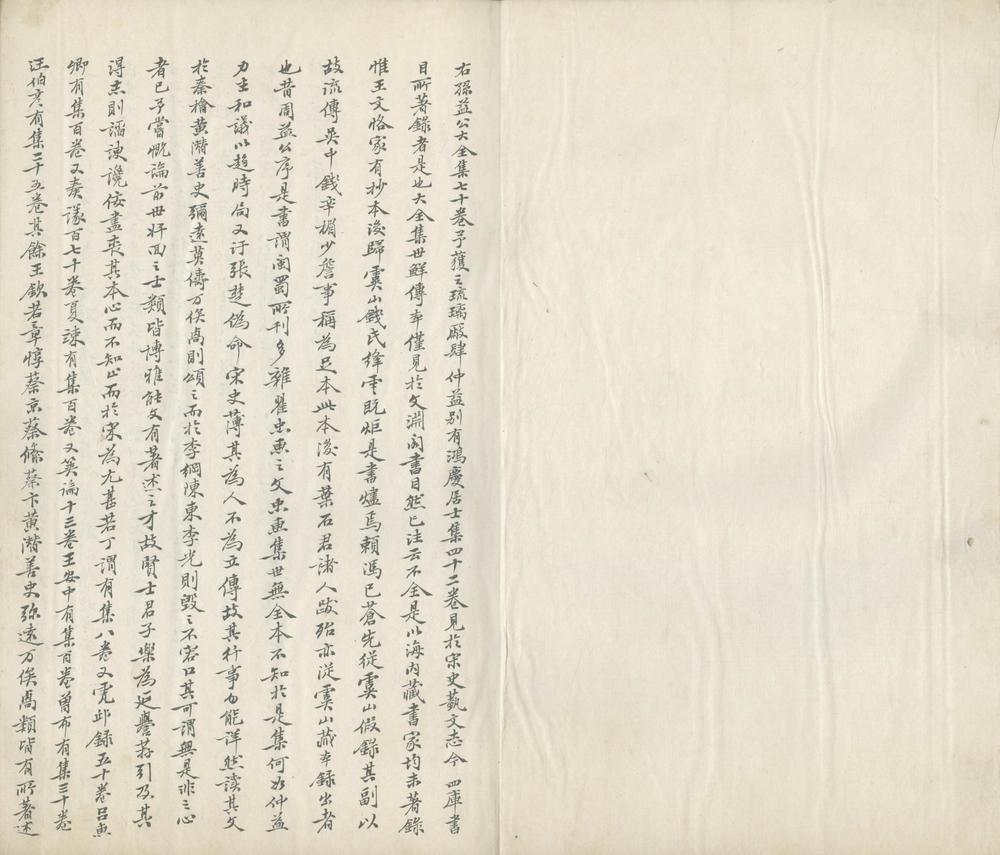 右孫益公大全集七十卷予獲之琉璃厰肆仲益别有鴻慶居士集四十二卷見於宋史藝文志今四庫書
目所著錄者是也大全集世鮮傳本僅見於文淵閣書目然已注云不全是以海內藏書家均未著錄
惟王文恪家有抄本後歸虞山錢氏絳雲既炬是書燼焉賴馮已蒼先從虞山假錄其副以
故流傳吳中錢辛楣少詹事稱為足本此本後有葉石君諸人跋殆亦從虞山藏本錄出者
也昔周益公序是書謂閩蜀所刊多雜瞿忠惠之文忠惠集世無全本不知於是集何如仲益
力主和議以趨時局又汙張楚偽命宋史薄其為人不為立傳故其行事勿能詳然讀其文
於秦檜黃潛善史彌遠莫儔万俟卨則頌之而於李綱陳東李光則毀之不容口其可謂無是非之心
者已予嘗慨論前世奸回之士類皆博雅能文有著述之才故賢士君子樂為延譽荐引及其
得志則謟諛讒佞盡喪其本心而不知止而於宋為尤甚若丁謂有集八卷又虎邱錄五十卷呂惠
卿有集百卷又奏議百七十卷夏竦有集百卷又策論十三卷王安中有集百卷曾布有集三十卷
汪伯彥有集二十五卷其餘王欽若章惇蔡京蔡絛蔡卞黃潛善史弥遠万俟卨類皆有所著述